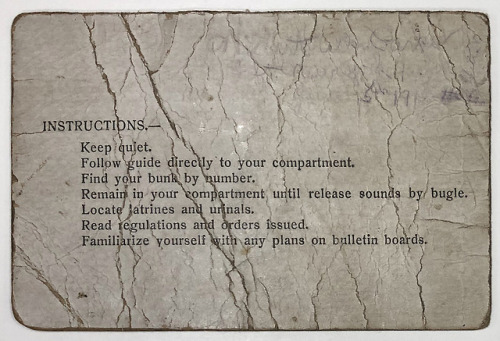 INSTRUCTIONS.—
Keep quiet.
Follow guide directly to your compartment.
Find your bunk by number.
Remain in your compartment until release sounds by bugle.
Locate latrines and urinals.
Read regulations and orders issued.
Familiarize yourself with any plans on bulletin boards.